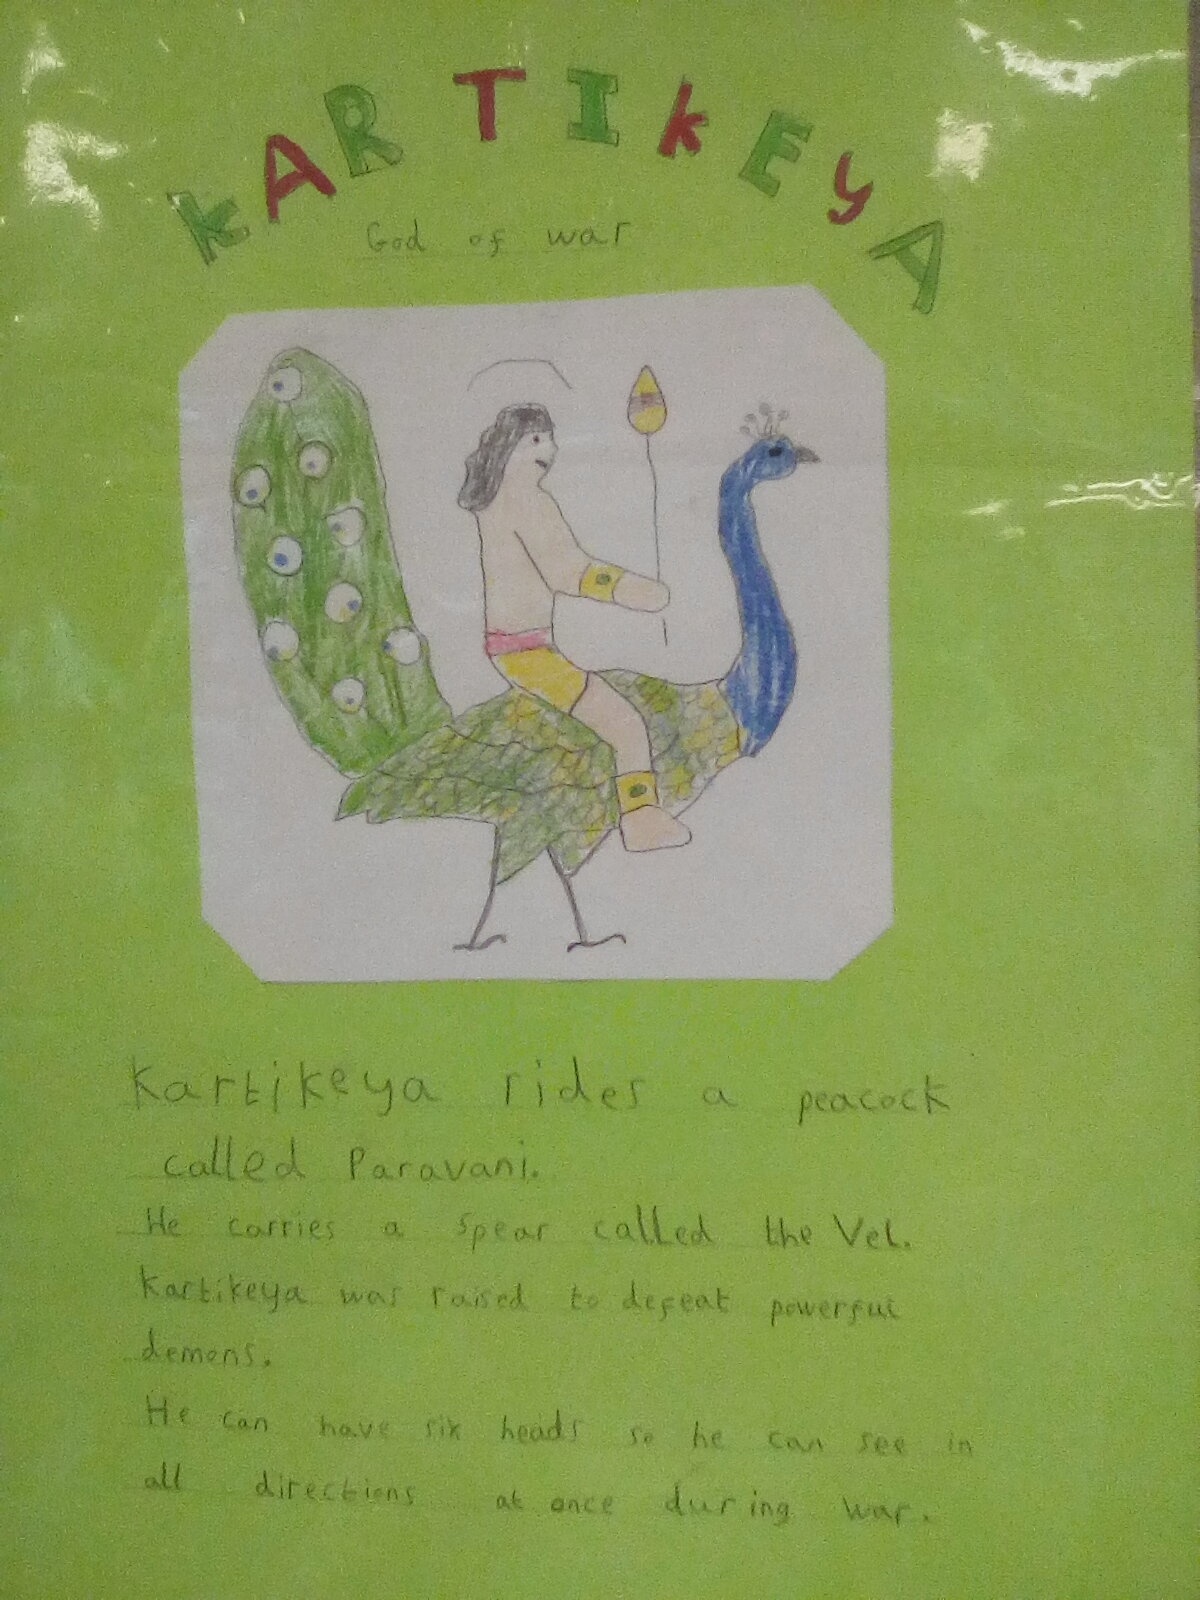 KARTIKEYA
God of war
Kartikeya rides a peacock
called Paravani.
He carries a spear called the Vel.
Kartikeya was raised to defeat powerful
demons.
He can have six heads so he can see in
all directions at once during war.